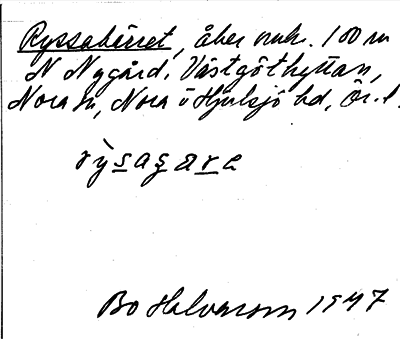 Ryssabäret, åker omkr. 100 m
N Nygård, Västgöthyttan,
Nora sn, Nora o Hjulsjö hd, Ör. l.
rỳsagare
Bo Halvarson 1947